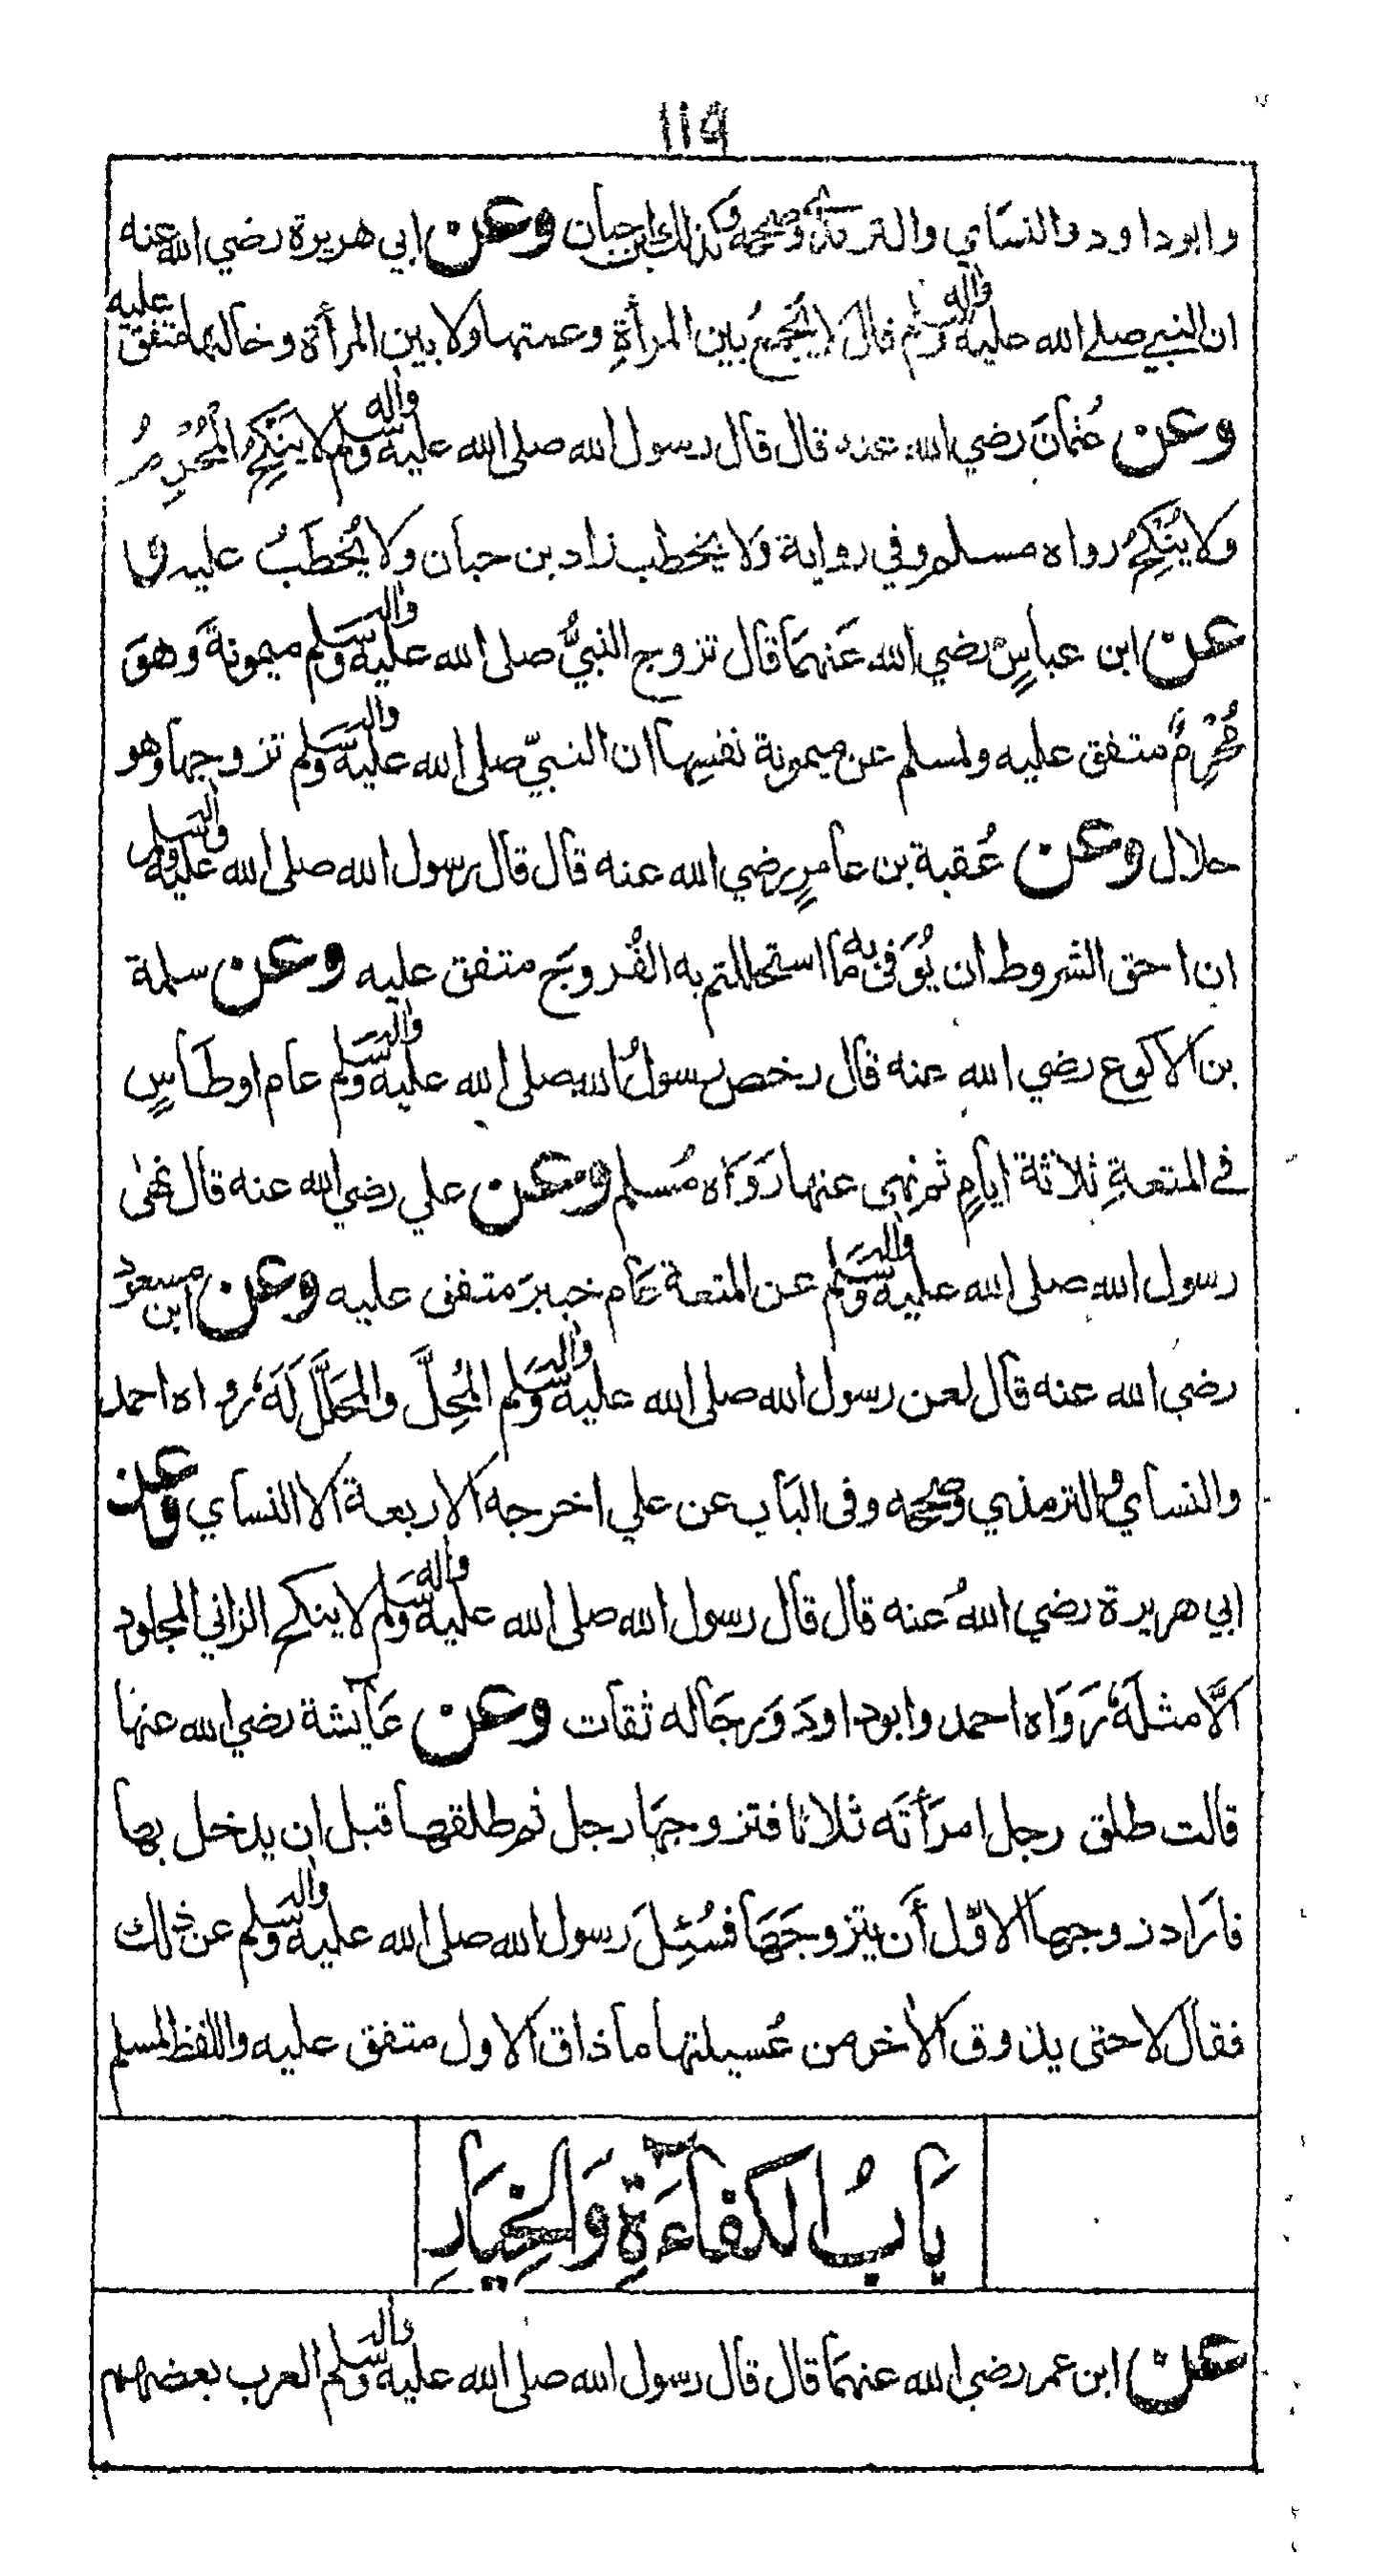 ١١٩
وابوداود والنسَاي والترمذي وصححه وكذلك ابن حبان وعن ابي هريرة رضي الله عنه
ان النبي صلى الله عليه واله وسلم قال لا يُجمعُ بين المرأةِ وعمتها ولا بين المرأة وخالتها متفق عليه
وعن عُثمانَ رضي الله عنه قال قال رسول الله صلى الله عليه واله وسلم لا يَنْكِحُ المُحْرِمُ
ولا يُنْكِحُ رواه مسلم وفي رواية ولا يخطب زاد بن حبان ولا يُخطَبُ عليه و
عن ابن عباسٍ رضي الله عَنهمَا قال تزوج النبيُّ صلى الله عليه واله وسلم ميمونةَ وهوَ
مُحْرِمٌ متفق عليه ولمسلم عن ميمونة نفسِها ان النبيّ صلى الله عليه واله وسلم تزوجها وهو
حلال وعن عُقبة بن عامرٍ رضي الله عنه قال قال رسول الله صلى الله عليه واله وسلم
ان احق الشروط ان يُوَفى به مَا استحللتم به الفُروجَ متفق عليه وعن سلمة
بن الاكوع رضي الله عنه قال رخص رسولُ الله صلى الله عليه واله وسلم عام اوطَاسٍ
في المتعةِ ثلاثة ايامٍ ثم نهى عنها رَوَاه مُسلم وعن علي رضي الله عنه قال نهىٰ
رسول الله صلى الله عليه واله وسلم عن المتعة عَام خيبرَ متفق عليه وعن ابن مسعود
رضي الله عنه قال لعن رسول الله صلى الله عليه واله وسلم المُحِلَّ والمحَلَّلَ لَهٗ رواه احمد
والنسايُ والترمذي وصححه وفى البَاب عن علي اخرجه الاربعة الا النساي وعن
ابي هريرة رضي اللهُ عنه قال قال رسول الله صلى الله عليه واله وسلم لا ينكح الزاني المجلود
الّا مثلَهٗ رَوَاه احمد وابوداودَ وَرجَاله ثقات وعن عَآئشة رضي الله عنها
قالت طلق رجل امرَأتَه ثلاثا فتزوجهَا رجل ثم طلقها قبل ان يدخل بها
فارَاد زوجها الاوّل أَن يتزوجَهَا فسُئِلَ رسول الله صلى الله عليه واله وسلم عن ذلك
فقال لا حتى يذوق الأخر من عُسيلتها ما ذاق الاول متفق عليه واللفظ لمسلم
بَابُ الكفاءَةِ وَالخِيَارِ
عن ابن عمر رضي الله عنهمَا قال قال رسول الله صلى الله عليه واله وسلم العرب بعضهم